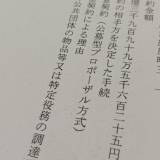 約金額
千九百九十九万五千六百二十五円
約の相手方を決定した手続
契約（公募型プロポーザル方式）
契約による理由
公共団体の物品等又は特定役務の調達